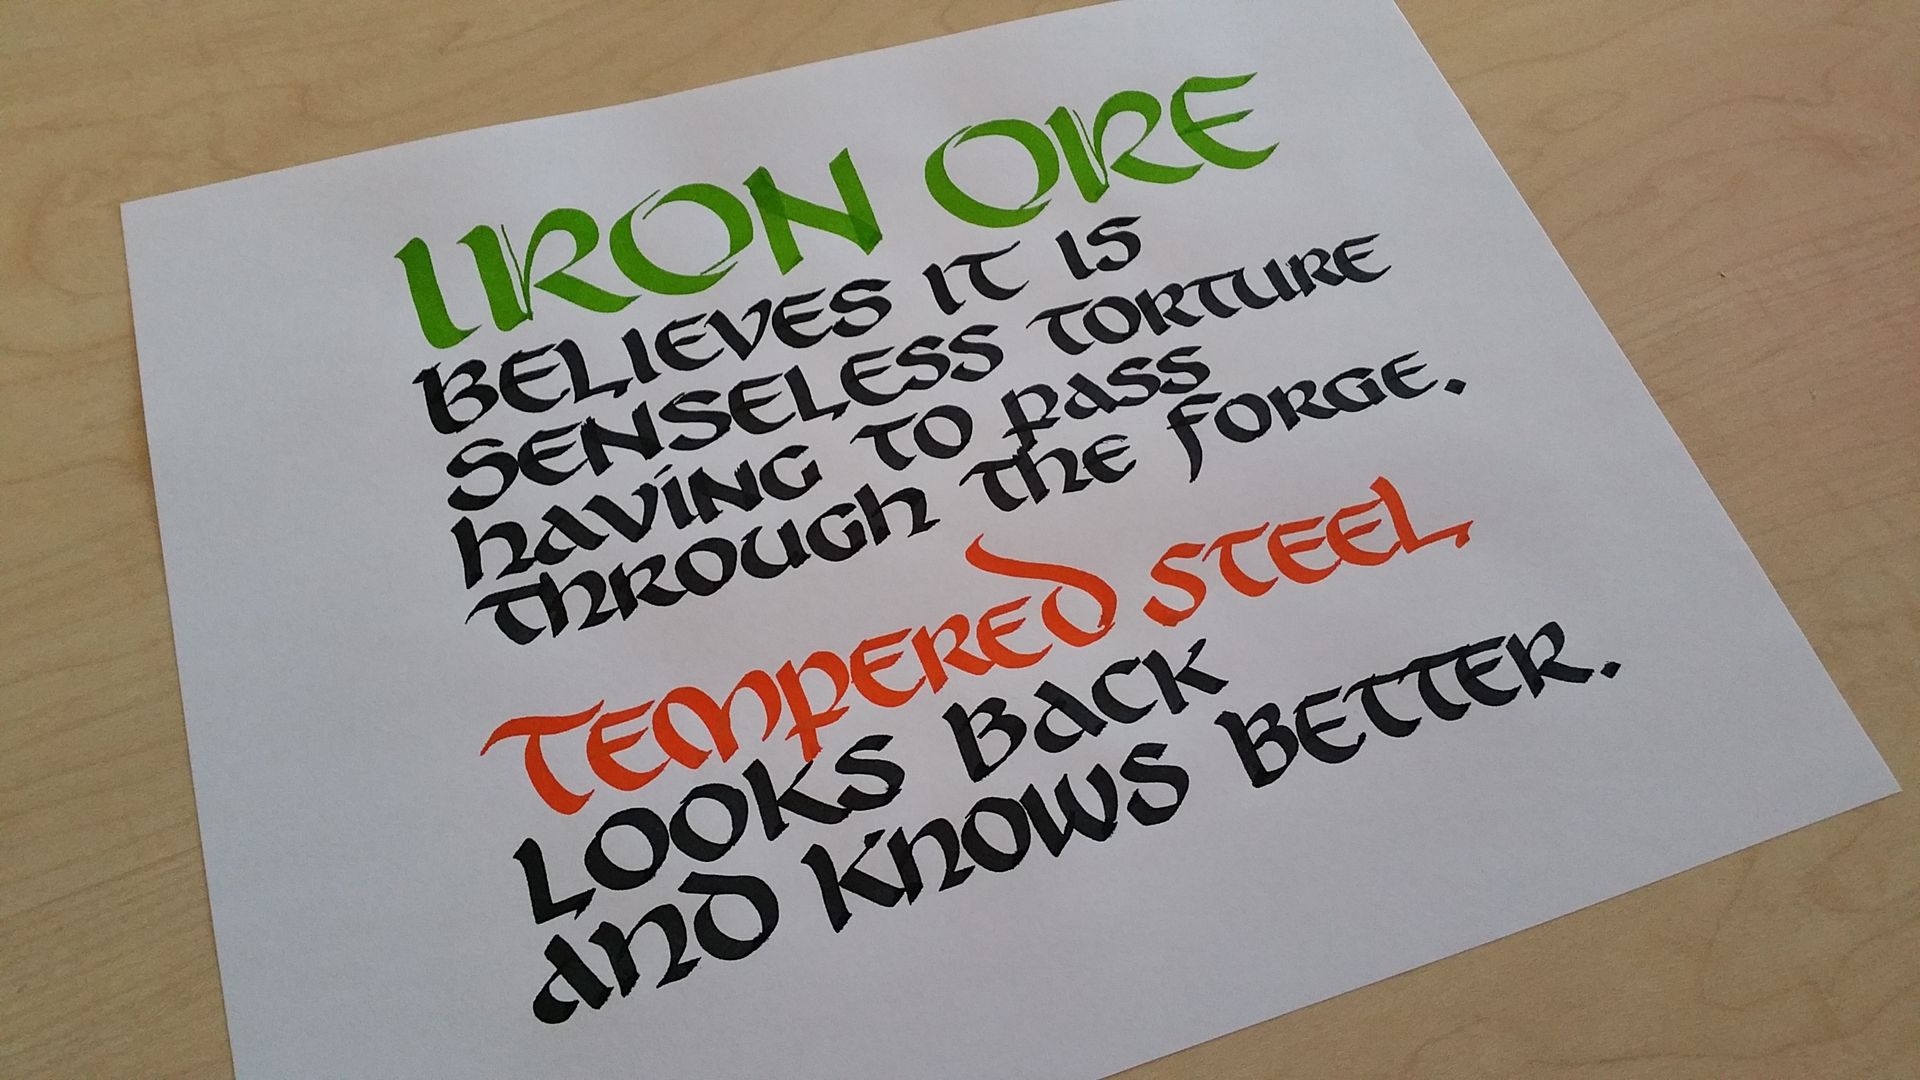 IRON ORE
BELIEVES IT IS
SENSELESS TORTURE
HAVING TO PASS
THROUGH THE FORGE.
TEMPERED STEEL
LOOKS BACK
AND KNOWS BETTER.